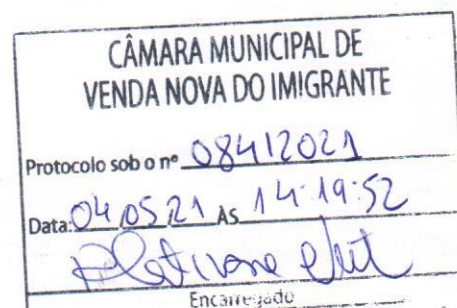 CÂMARA MUNICIPAL DE
VENDA NOVA DO IMIGRANTE
Protocolo sob o nº 084/2021
Data: 04/05/21 ÀS 14:19:52
Encarregado